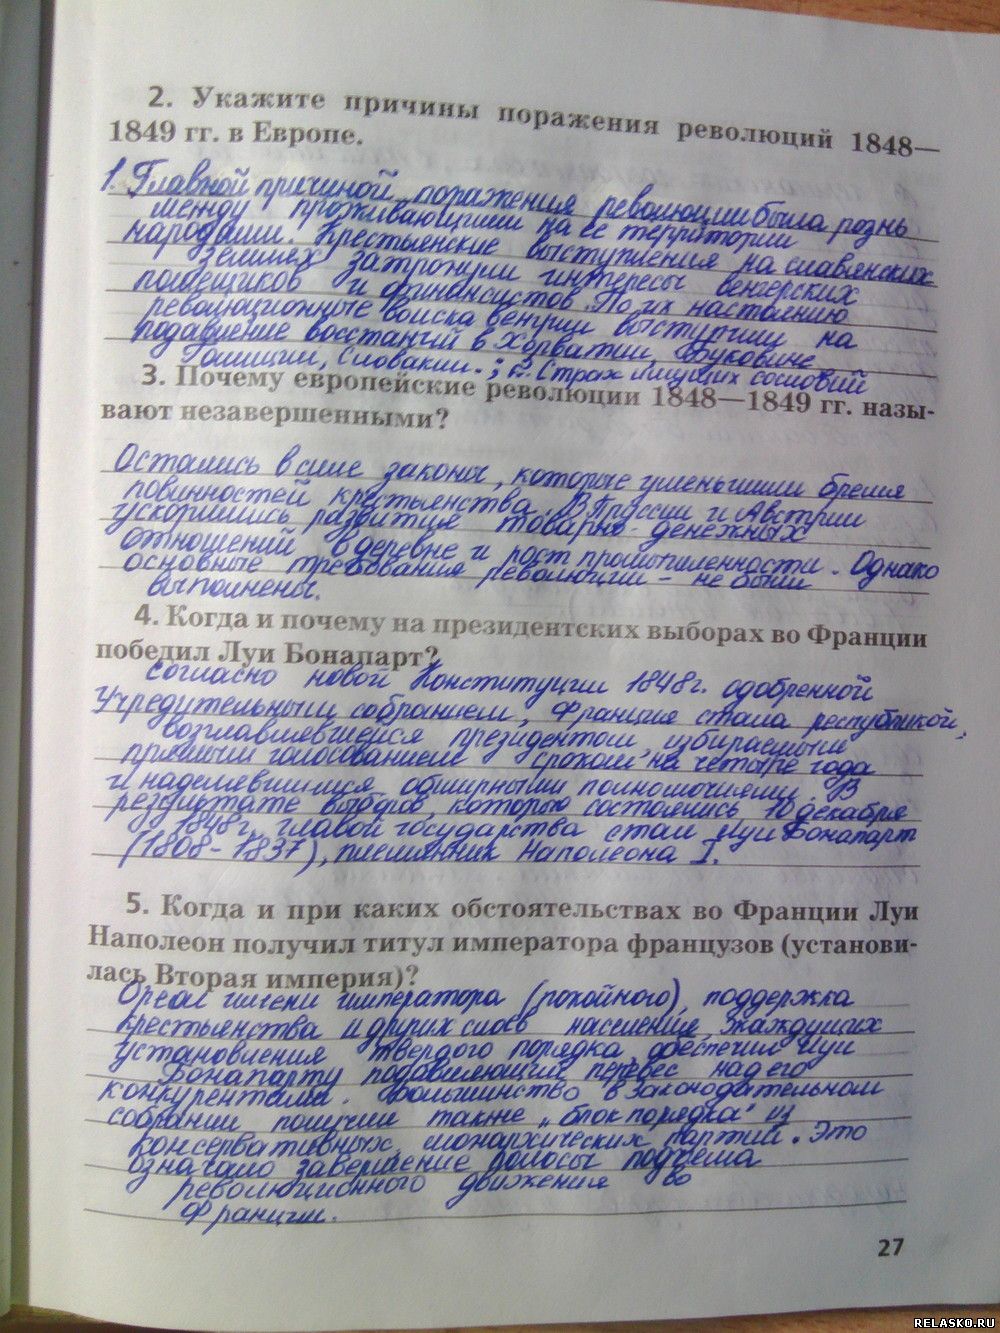 2. Укажите причины поражения революций 1848—
1849 гг. в Европе.
1. Главной причиной поражения революции была рознь
между проживающими на ее территории
народами. Крестьянские выступления на славянских
землях затронули интересы венгерских
помещиков и финансистов. По их настоянию
революционные войска Венгрии выступили на
подавление восстаний в Хорватии, Буковине
Галиции, Словакии. ; 2. Страх имущих сословий
3. Почему европейские революции 1848—1849 гг. назы-
вают незавершенными?
Остались в силе законы, которые уменьшили бремя
повинностей крестьянства. В Пруссии и Австрии
ускорились развития товарно-денежных
отношений в деревне и рост промышленности. Однако
основные требования революции - не были
выполнены.
4. Когда и почему на президентских выборах во Франции
победил Луи Бонапарт?
Согласно новой Конституции 1848г. одобренной
Учредительным собранием, Франция стала республикой,
возглавлявшейся президентом, избираемым
прямым голосованием сроком на четыре года
и наделявшимся обширными полномочиями. В
результате выборов, которые состоялись 10 декабря
1848г, главой государства стал Луи Бонапарт
(1808-1837), племянник Наполеона I.
5. Когда и при каких обстоятельствах во Франции Луи
Наполеон получил титул императора французов (установи-
лась Вторая империя)?
Ореол имени императора (покойного), поддержка
крестьянства и других слоев населения, жаждущих
установления твердого порядка, обеспечил Луи
Бонапарту подавляющий перевес над его
конкурентами. Большинство в Законодательном
собрании получил также "блок порядка" из
консервативных, монархических партий. Это
означало завершение полосы подъема
революционного движения во
Франции.
27
RELASKO.RU